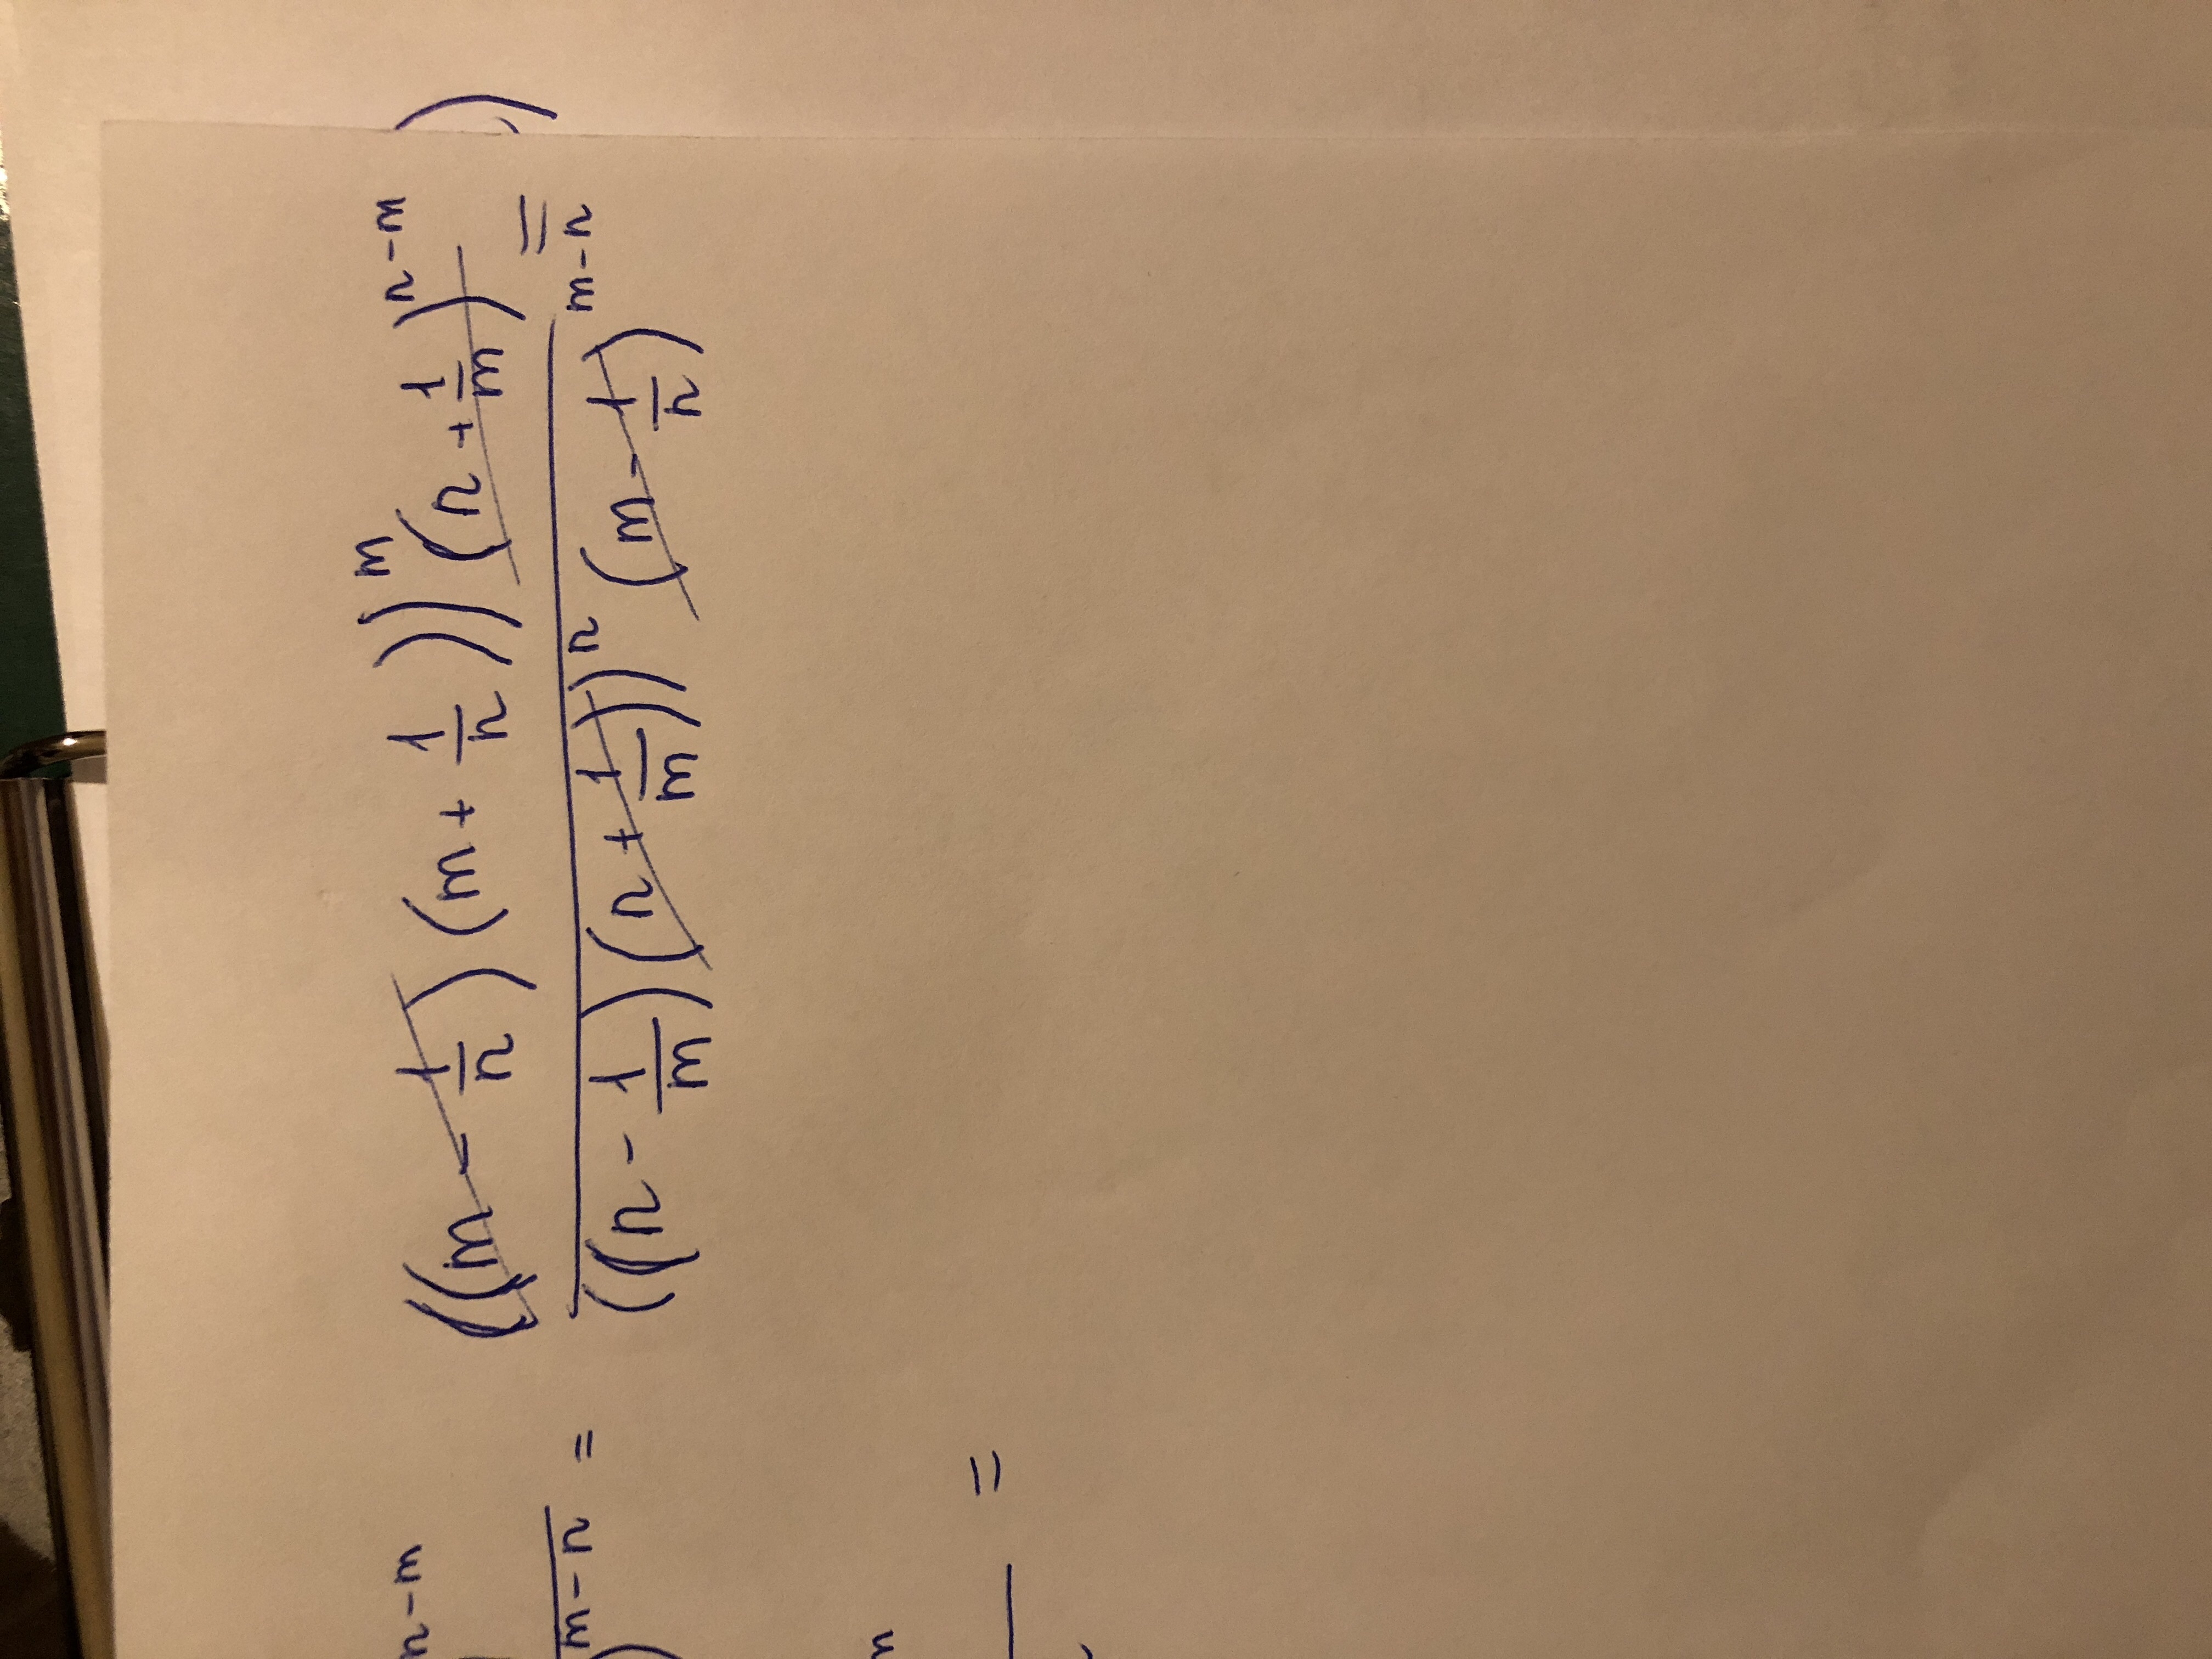 n-m
m-n =
((m - 1/n)(m + 1/n))^m (n + 1/m)^(n-m)
((n - 1/m)(n + 1/m))^n (m - 1/n)^(m-n) =
n
=